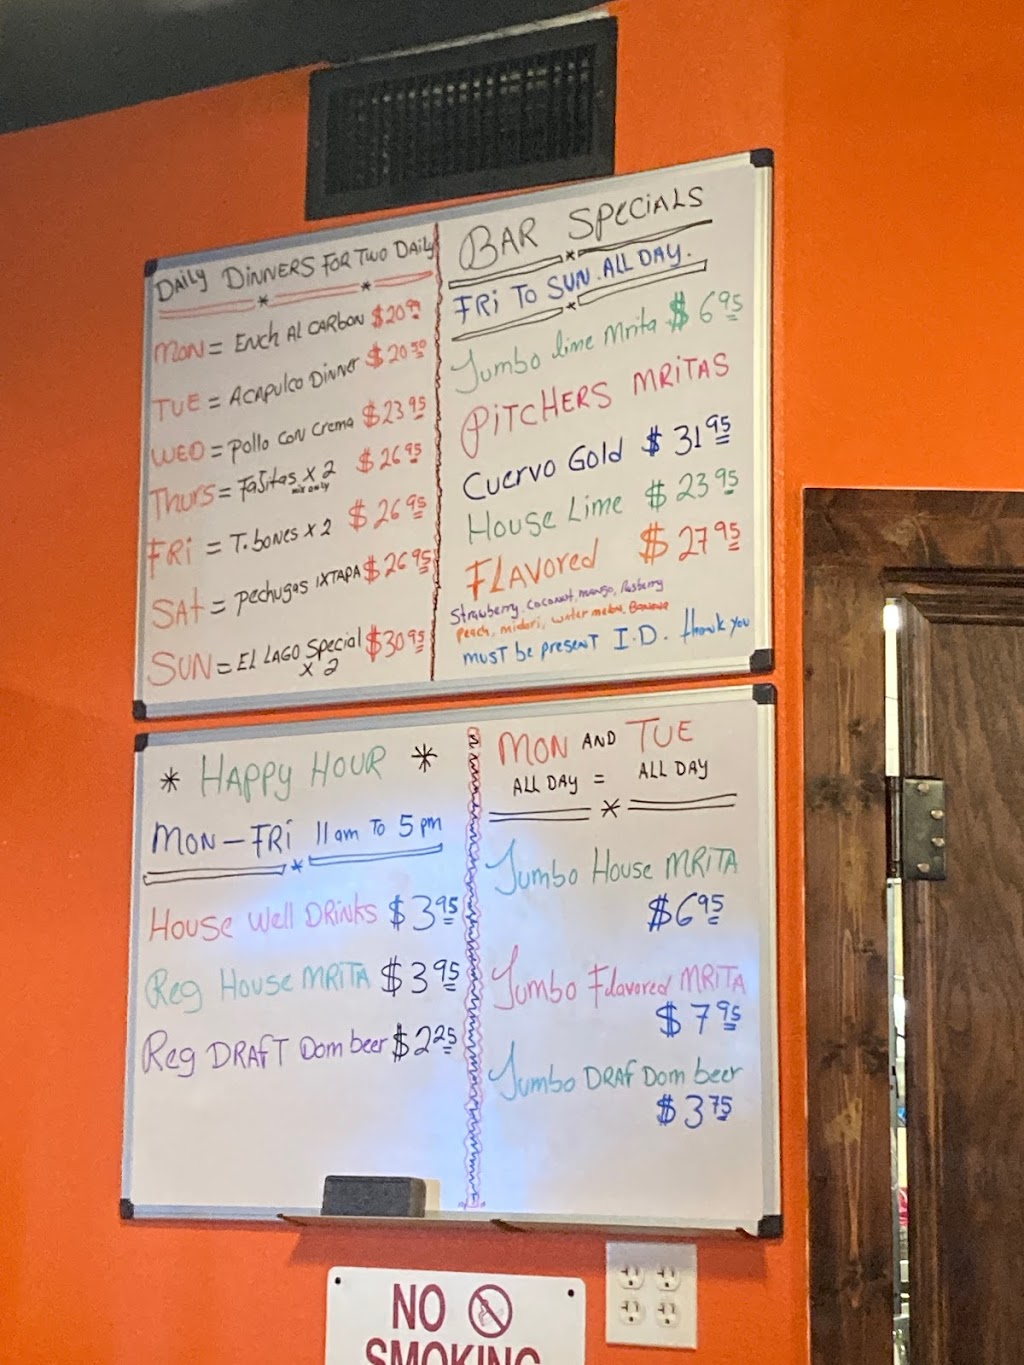 DAILY DINNERS FOR TWO DAILY
MON = Ench Al CARbon $20.99
TUE = ACApulco Dinner $20.50
WED = pollo con crema $23.95
THURS = FaJitas x 2 $26.95
mix only
FRi = T.bones x 2 $26.95
SAt = pechugas IXTAPA $26.95
SUN = EL LAGO Special $30.95
x 2
BAR SPECiALS
FRi TO SUN. ALL DAY.
Jumbo lime Mrita $6.95
PiTCHERS MRiTAS
Cuervo Gold $31.95
House Lime $23.95
FLAvored $27.95
Strawberry, coconut, mango, Rasberry
peach, midori, water melon, Banana
must be present I.D. thank you
* HAPPY HOUR *
MON – FRi 11am To 5pm
House Well DRinks $3.95
Reg House MRiTA $3.95
Reg DRAfT Dom beer $2.25
MON AND TUE
ALL DAY = ALL DAY
Jumbo House MRiTA
$6.95
Jumbo Flavored MRiTA
$7.95
Jumbo DRAf Dom beer
$3.75
NO
SMOKING